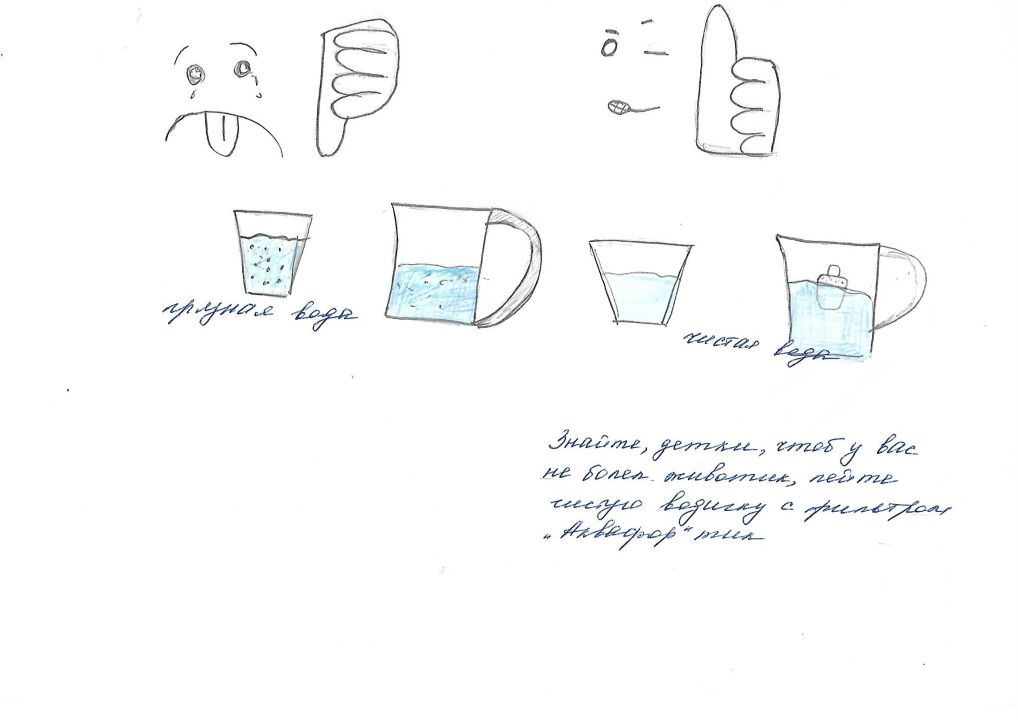 грязная вода
чистая вода
Знайте, детки, чтоб у вас
не болел животик, пейте
чистую водичку с фильтром
„Аквафор“тик